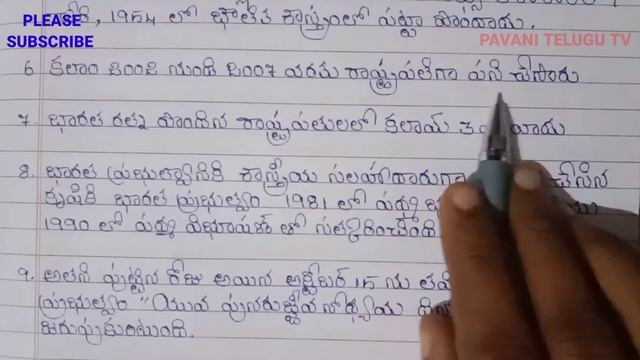 PLEASE
SUBSCRIBE
PAVANI TELUGU TV
1954 లో భౌతిక శాస్త్రంలో పట్టా పొందారు.
6 కలాం 2002 నుండి 2007 వరకు రాష్ట్రపతిగా పని చేసారు
7. భారత రత్న పొందిన రాష్ట్రపతులలో కలామ్ 3
8. భారత ప్రభుత్వానికి శాస్త్రీయ సలహాదారుగా చేసిన
కృషికి భారత ప్రభుత్వం 1981 లో పద్మ
1990 లో పద్మ విభూషణ్ తో సత్కరించింది
9. అతని పుట్టిన రోజు అయిన అక్టోబర్ 15 ను
ప్రభుత్వం "యువ పునరుజ్జీవనోధ్యమ
జరుపుకుంటుంది.